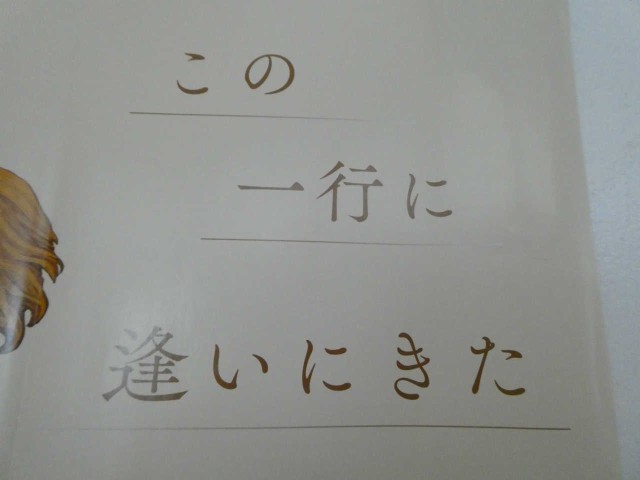 この
一行に
逢いにきた